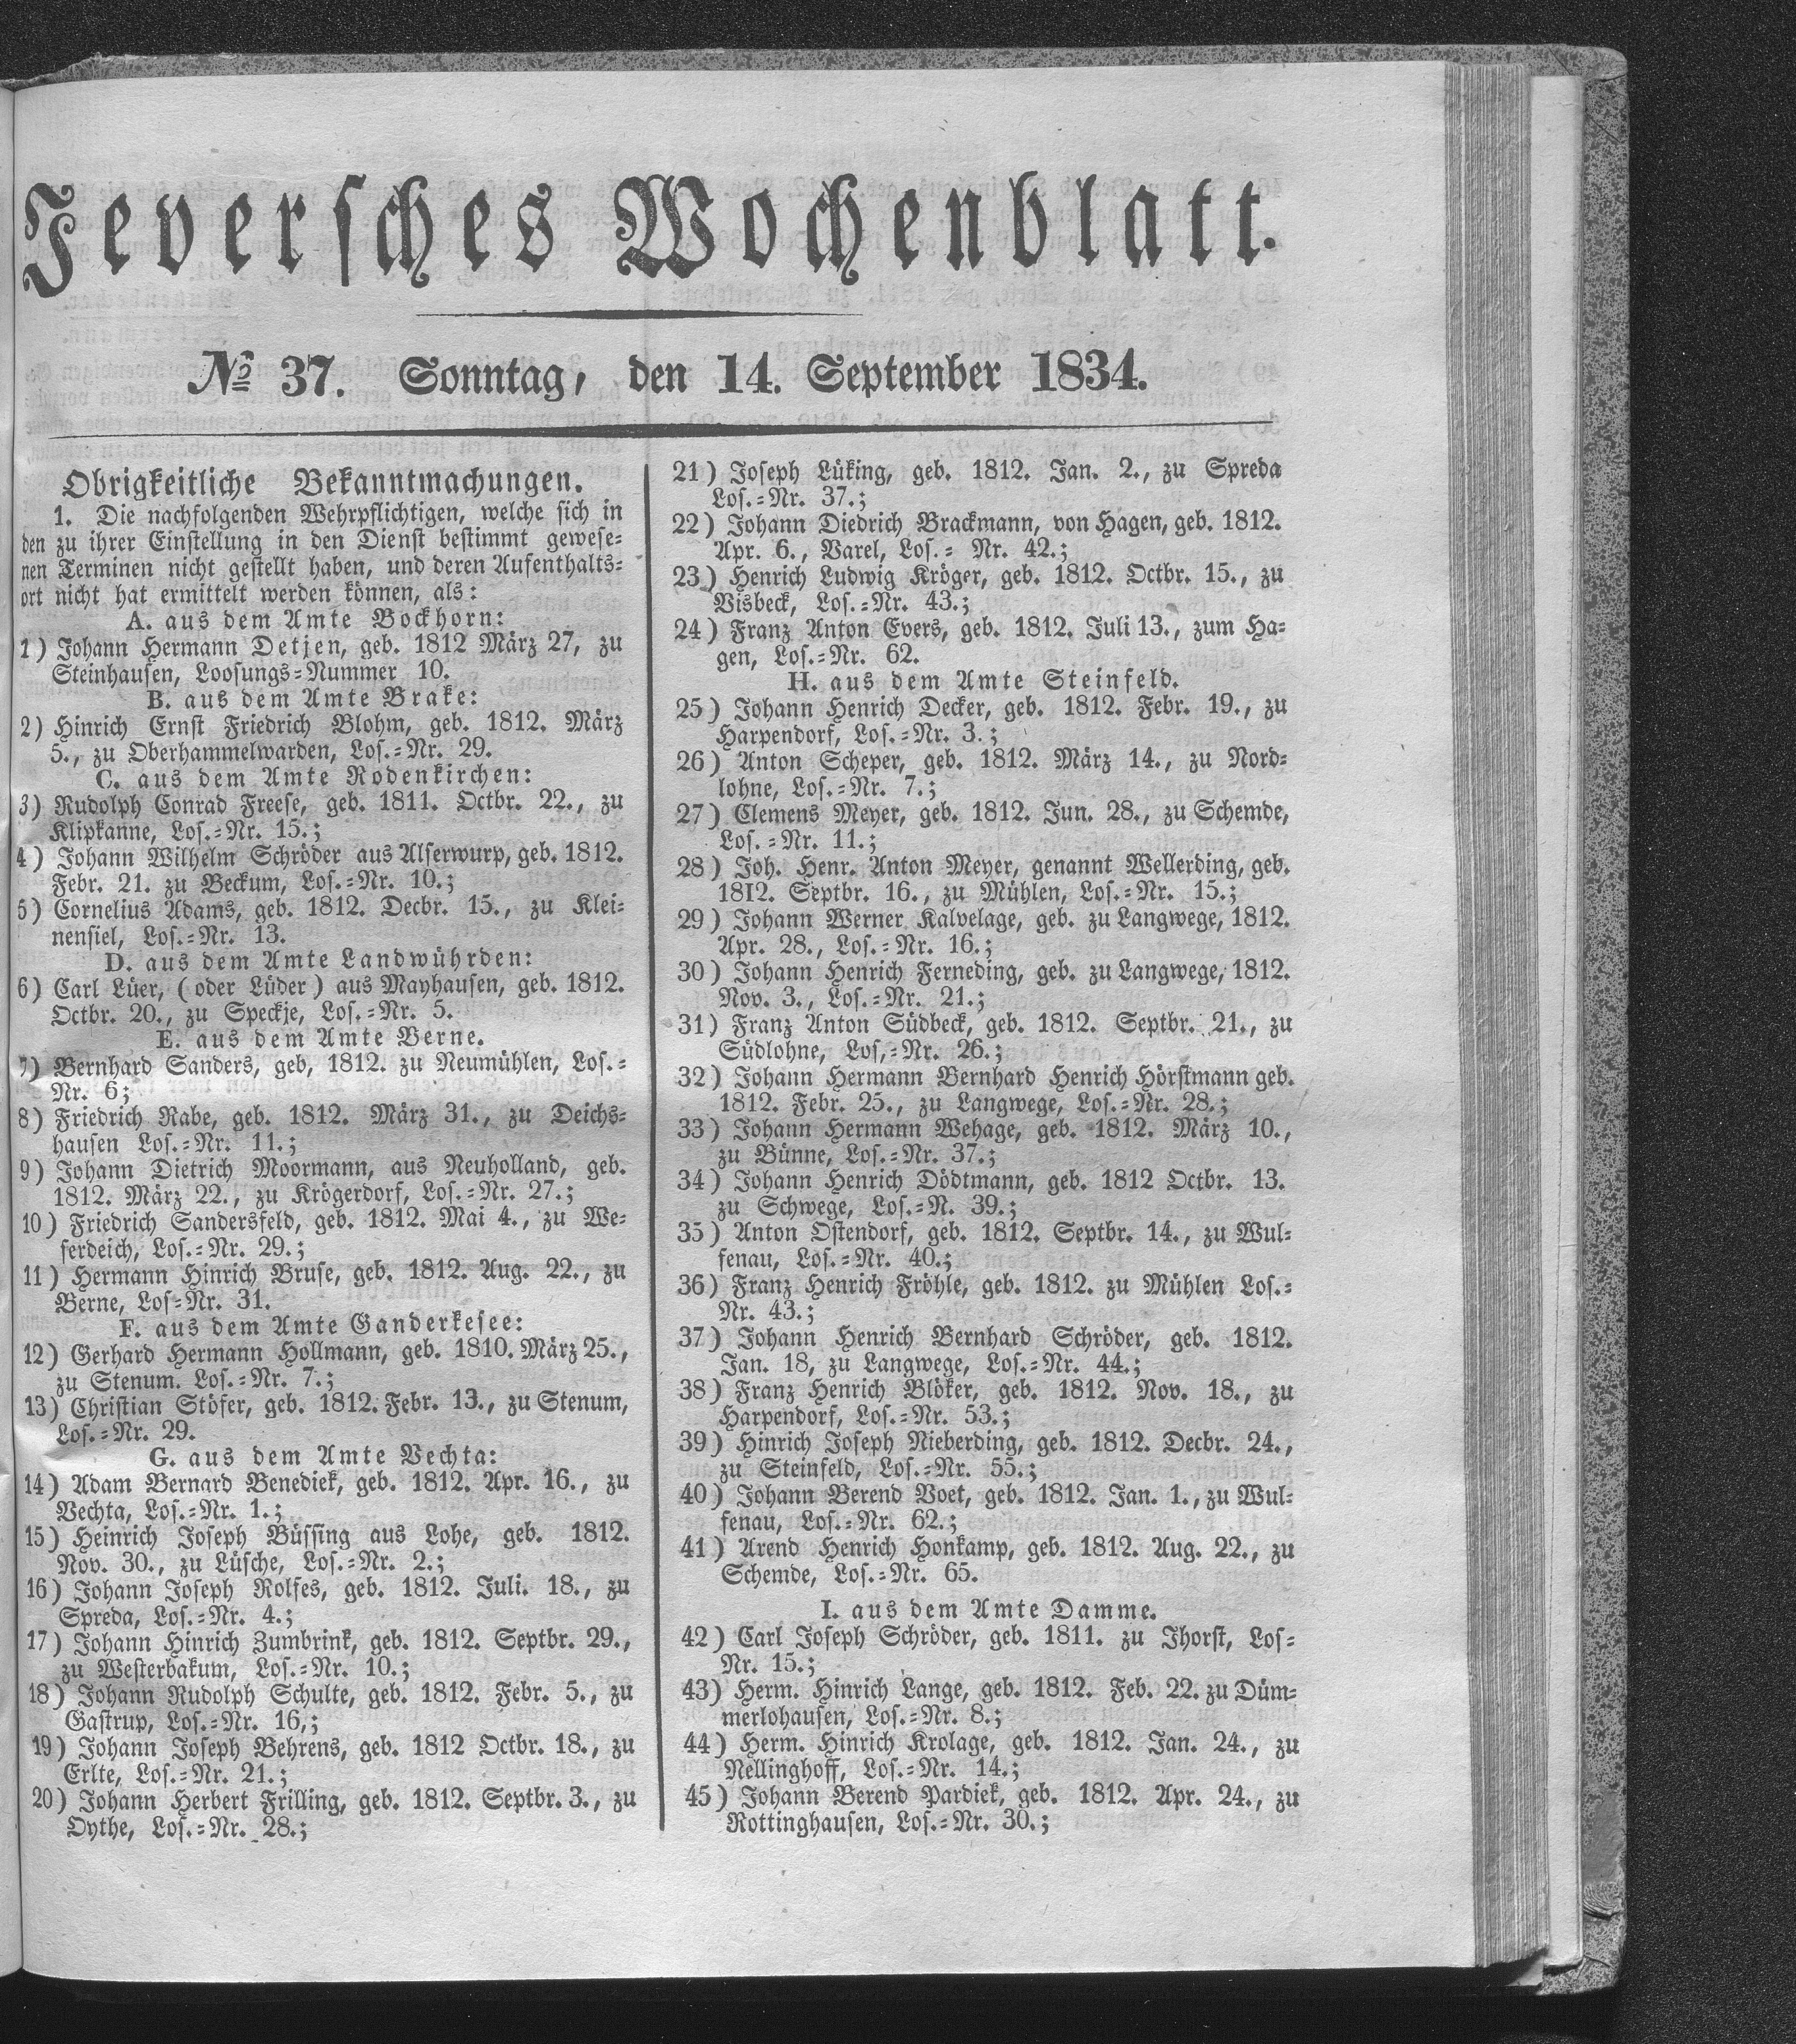 Jeversches Wochenblatt.
№ 37. Sonntag, den 14. September 1834.
Obrigkeitliche Bekanntmachungen.
1. Die nachfolgenden Wehrpflichtigen, welche sich in
den zu ihrer Einstellung in den Dienst bestimmt gewese-
nen Terminen nicht gestellt haben, und deren Aufenthalts-
ort nicht hat ermittelt werden können, als:
A. aus dem Amte Bockhorn:
1) Johann Hermann Detjen, geb. 1812 März 27, zu
Steinhausen, Loosungs-Nummer 10.
B. aus dem Amte Brake:
2) Hinrich Ernst Friedrich Blohm, geb. 1812. März
5., zu Oberhammelwarden, Los.-Nr. 29.
C. aus dem Amte Rodenkirchen:
3) Rudolph Conrad Freese, geb. 1811. Octbr. 22., zu
Klipkanne, Los.-Nr. 15.;
4) Johann Wilhelm Schröder aus Alserwurp, geb. 1812.
Febr. 21. zu Beckum, Los.-Nr. 10.;
5) Cornelius Adams, geb. 1812. Decbr. 15., zu Klei-
nensiel, Los.-Nr. 13.
D. aus dem Amte Landwührden:
6) Carl Lüer, (oder Lüder) aus Mayhausen, geb. 1812.
Octbr. 20., zu Speckje, Los.-Nr. 5.
E. aus dem Amte Berne.
7) Bernhard Sanders, geb, 1812. zu Neumühlen, Los.-
Nr. 6;
8) Friedrich Rabe, geb. 1812. März 31., zu Deichs-
hausen Los.-Nr. 11.;
9) Johann Dietrich Moormann, aus Neuholland, geb.
1812. März 22., zu Krögerdorf, Los.-Nr. 27.;
10) Friedrich Sandersfeld, geb. 1812. Mai 4., zu We-
serdeich, Los.-Nr. 29.;
11) Hermann Hinrich Bruse, geb. 1812. Aug. 22., zu
Berne, Los-Nr. 31.
F. aus dem Amte Ganderkesee:
12) Gerhard Hermann Hollmann, geb. 1810. März 25.,
zu Stenum. Los.-Nr. 7.;
13) Christian Stöfer, geb. 1812. Febr. 13., zu Stenum,
Los.-Nr. 29.
G. aus dem Amte Vechta:
14) Adam Bernard Benediek, geb. 1812. Apr. 16., zu
Vechta, Los.-Nr. 1.;
15) Heinrich Joseph Büssing aus Lohe, geb. 1812.
Nov. 30., zu Lüsche, Los.-Nr. 2.;
16) Johann Joseph Rolfes, geb. 1812. Juli. 18., zu
Spreda, Los.-Nr. 4.;
17) Johann Hinrich Zumbrink, geb. 1812. Septbr. 29.,
zu Westerbakum, Los.-Nr. 10.;
18) Johann Rudolph Schulte, geb. 1812. Febr. 5., zu
Gastrup, Los.-Nr. 16,;
19) Johann Joseph Behrens, geb. 1812 Octbr. 18., zu
Erlte, Los.-Nr. 21.;
20) Johann Herbert Frilling, geb. 1812. Septbr. 3., zu
Oythe, Los.-Nr. 28.;
21) Joseph Lüking, geb. 1812. Jan. 2., zu Spreda
Los.-Nr. 37.;
22) Johann Diedrich Brackmann, von Hagen, geb. 1812.
Apr. 6., Varel, Los.- Nr. 42.;
23) Henrich Ludwig Kröger, geb. 1812. Octbr. 15., zu
Visbeck, Los.-Nr. 43.;
24) Franz Anton Evers, geb. 1812. Juli 13., zum Ha-
gen, Los.-Nr. 62.
H. aus dem Amte Steinfeld.
25) Johann Henrich Decker, geb. 1812. Febr. 19., zu
Harpendorf, Los.-Nr. 3.;
26) Anton Scheper, geb. 1812. März 14., zu Nord-
lohne, Los.-Nr. 7.;
27) Clemens Meyer, geb. 1812. Jun. 28., zu Schemde,
Los.-Nr. 11.;
28) Joh. Henr. Anton Meyer, genannt Wellerding, geb.
1812. Septbr. 16., zu Mühlen, Los.-Nr. 15.;
29) Johann Werner Kalvelage, geb. zu Langwege, 1812.
Apr. 28., Los.-Nr. 16.;
30) Johann Henrich Ferneding, geb. zu Langwege, 1812.
Nov. 3., Los.-Nr. 21.;
31) Franz Anton Südbeck, geb. 1812. Septbr. 21., zu
Südlohne, Los,-Nr. 26.;
32) Johann Hermann Bernhard Henrich Hörstmann geb.
1812. Febr. 25., zu Langwege, Los.-Nr. 28.;
33) Johann Hermann Wehage, geb. 1812. März 10.,
zu Bünne, Los.-Nr. 37.;
34) Johann Henrich Dödtmann, geb. 1812 Octbr. 13.
zu Schwege, Los.-N. 39.;
35) Anton Ostendorf, geb. 1812. Septbr. 14., zu Wul-
fenau, Los.-Nr. 40.;
36) Franz Henrich Fröhle, geb. 1812. zu Mühlen Los.-
Nr. 43.;
37) Johann Henrich Bernhard Schröder, geb. 1812.
Jan. 18, zu Langwege, Los.-Nr. 44.;
38) Franz Henrich Blöker, geb. 1812. Nov. 18., zu
Harpendorf, Los.-Nr. 53.;
39) Hinrich Joseph Nieberding, geb. 1812. Decbr. 24.,
zu Steinfeld, Los.-Nr. 55.;
40) Johann Berend Voet, geb. 1812. Jan. 1., zu Wul-
fenau, Los.-Nr. 62.;
41) Arend Henrich Honkamp, geb. 1812. Aug. 22., zu
Schemde, Los.-Nr. 65.
I. aus dem Amte Damme.
42) Carl Joseph Schröder, geb. 1811. zu Jhorst, Los-
Nr. 15.;
43) Herm. Hinrich Lange, geb. 1812. Feb. 22. zu Düm-
merlohausen, Los.-Nr. 8.;
44) Herm. Hinrich Krolage, geb. 1812. Jan. 24., zu
Nellinghoff, Los.-Nr. 14.;
45) Johann Berend Pardiek, geb. 1812. Apr. 24., zu
Rottinghausen, Los.-Nr. 30.;